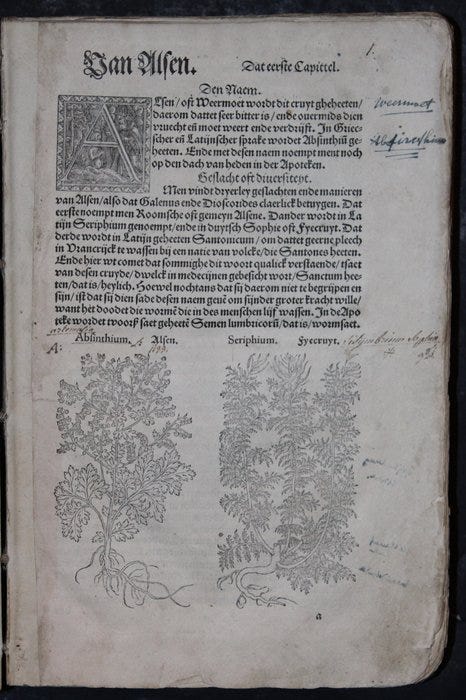 1.
Van Alsen.
Dat eerste Capittel.
Den Naem.
ALsen/oft Weermoet wordt dit cruyt gheheeten/
daerom dattet seer bitter is/ende overmids dien
vruecht en̄ moet weert ende verdrijft. In Griec-
scher en̄ Latijnscher sprake wordet Absinthiū ge-
heeten. Ende met desen naem noempt ment noch
op den dach van heden in der Apoteken.
Geslacht oft diversiteyt.
Men vindt dryerley geslachten ende manieren
van Alsen/also dat Galenus ende Dioscorides claerlick betuygen. Dat
eerste noempt men Roomsche oft gemeyn Alsene. Dander wordt in La
tijn Seriphium genoempt/ende in duytsch Sophie oft Fyecruyt. Dat
derde wordt in Latijn geheeten Santonicum/om dattet geerne pleech
in Vrancrijck te wassen bij een natie van volcke/die Santones heeten.
Ende hier wt comet dat sommighe dit woort qualick verstaende/tsaet
van desen cruyde/dwelck in medecijnen gebesicht wort/Sanctum hee-
ten/dat is/heylich. Hoewel nochtans dat sij daerom niet te begrijpen en
sijn/ist dat sij dien sade desen naem gevē om sijnder groter kracht wille/
want het doodet die wormē die in des menschen lijf wassen. In de Apo
teke wordet woorß saet geheetē Semen lumbricorū/dat is/wormsaet.
Absinthium. Alsen. Seriphium. Fyecruyt.
A:
Weermoet
Absinthium
a